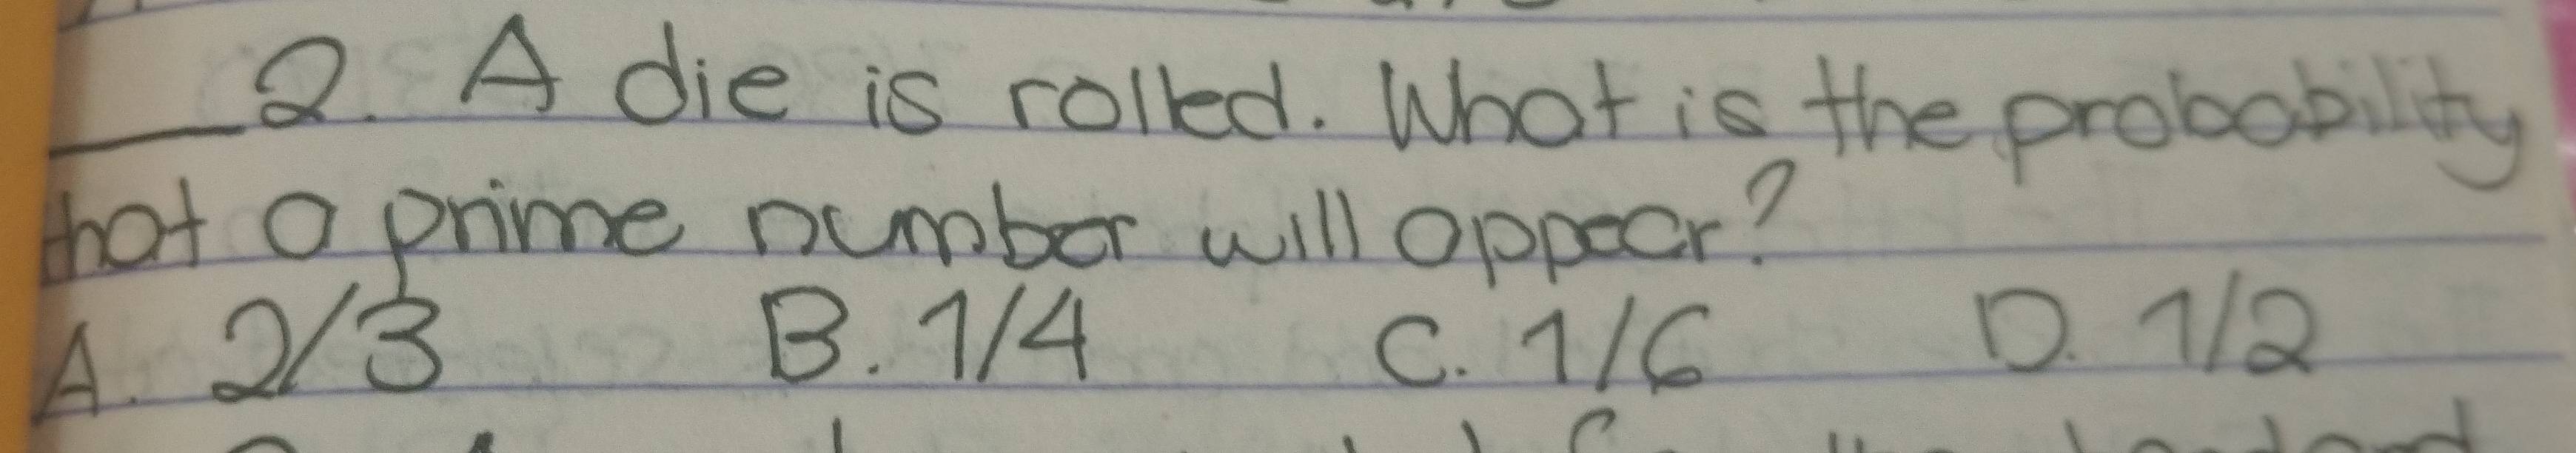 2. A die is rolled. What is the probability
that a prime number will appear?
A. 2/3 B. 1/4 C. 1/6 D. 1/2